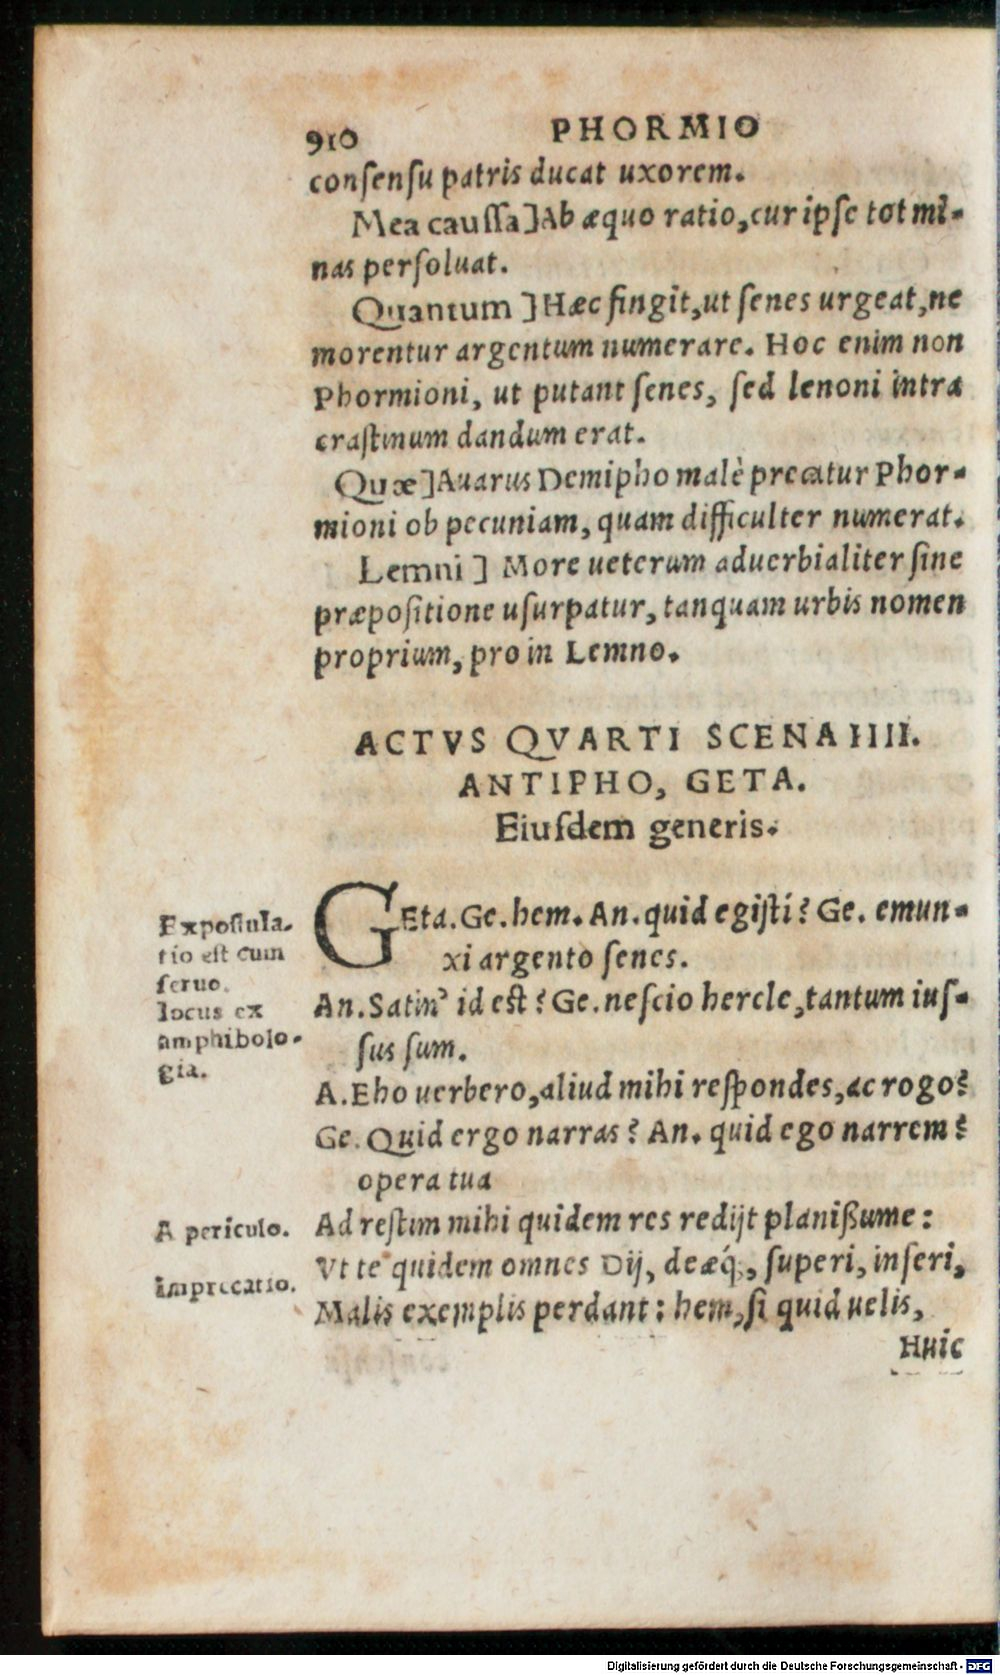 910 PHORMIO
conſenſu patris ducat uxorem.
Mea cauſſa] Ab æquo ratio, cur ipſe tot mi-
nas perſoluat.
Quantum] Hæc fingit, ut ſenes urgeat, ne
morentur argentum numerare. Hoc enim non
Phormioni, ut putant ſenes, ſed lenoni intra
craſtinum dandum erat.
Quæ] Auarus Demipho malè precatur Phor-
mioni ob pecuniam, quam difficulter numerat.
Lemni] More ueterum aduerbialiter ſine
præpoſitione uſurpatur, tanquam urbis nomen
proprium, pro in Lemno.
ACTVS QVARTI SCENA IIII.
ANTIPHO, GETA.
Eiuſdem generis.
Expoſtula-
tio eſt cum
ſeruo.
locus ex
amphibolo-
gia.
GEta. Ge. hem. An. quid egiſti? Ge. emun-
xi argento ſenes.
An. Satin' id eſt? Ge. neſcio hercle, tantum iuſ-
ſus ſum.
A. Eho uerbero, aliud mihi reſpondes, ac rogo?
Ge. Quid ergo narras? An. quid ego narrem?
opera tua
A periculo.
Ad reſtim mihi quidem res redijt planißume:
Vt te quidem omnes Dij, deæq́;, ſuperi, inferi,
Imprecatio.
Malis exemplis perdant: hem, ſi quid uelis,
Huic
Digitalisierung gefördert durch die Deutsche Forschungsgemeinschaft - DFG